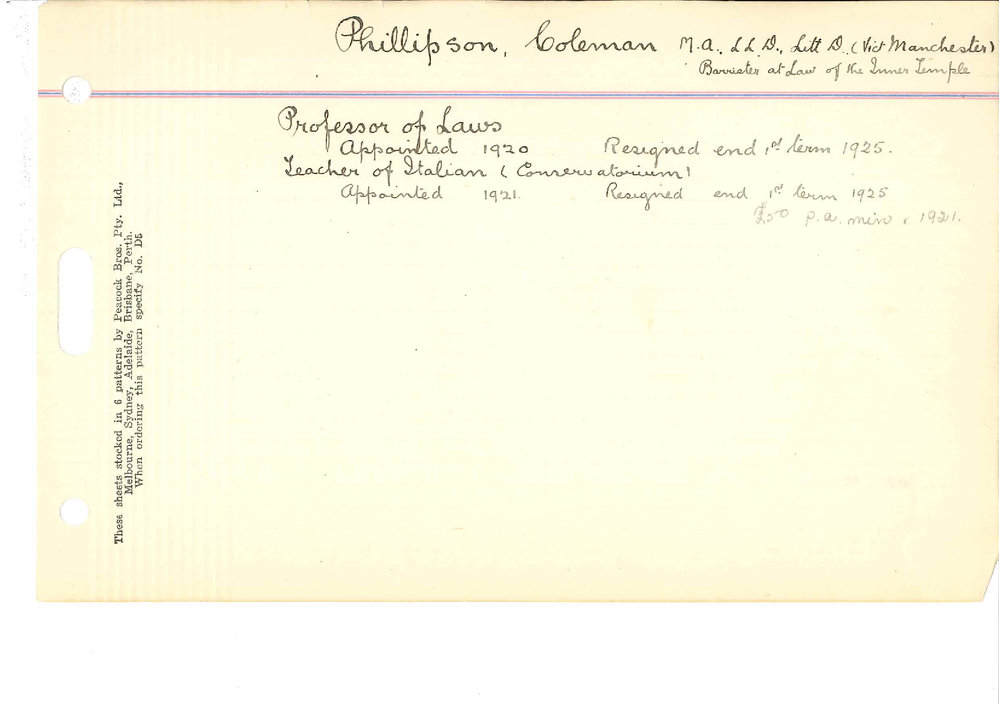 Phillipson, Coleman M.A., LL.D., Litt D. (Vict Manchester)
Barrister at Law of the Inner Temple
Professor of Laws
Appointed 1920 Resigned end 1st term 1925.
Teacher of Italian (Conservatorium)
Appointed 1921. Resigned end 1st term 1925
£50 p.a. min. 1921.
These sheets stocked in 6 patterns by Peacock Bros. Pty. Ltd.,
Melbourne, Sydney, Adelaide, Brisbane, Perth.
When ordering this pattern specify No. D5